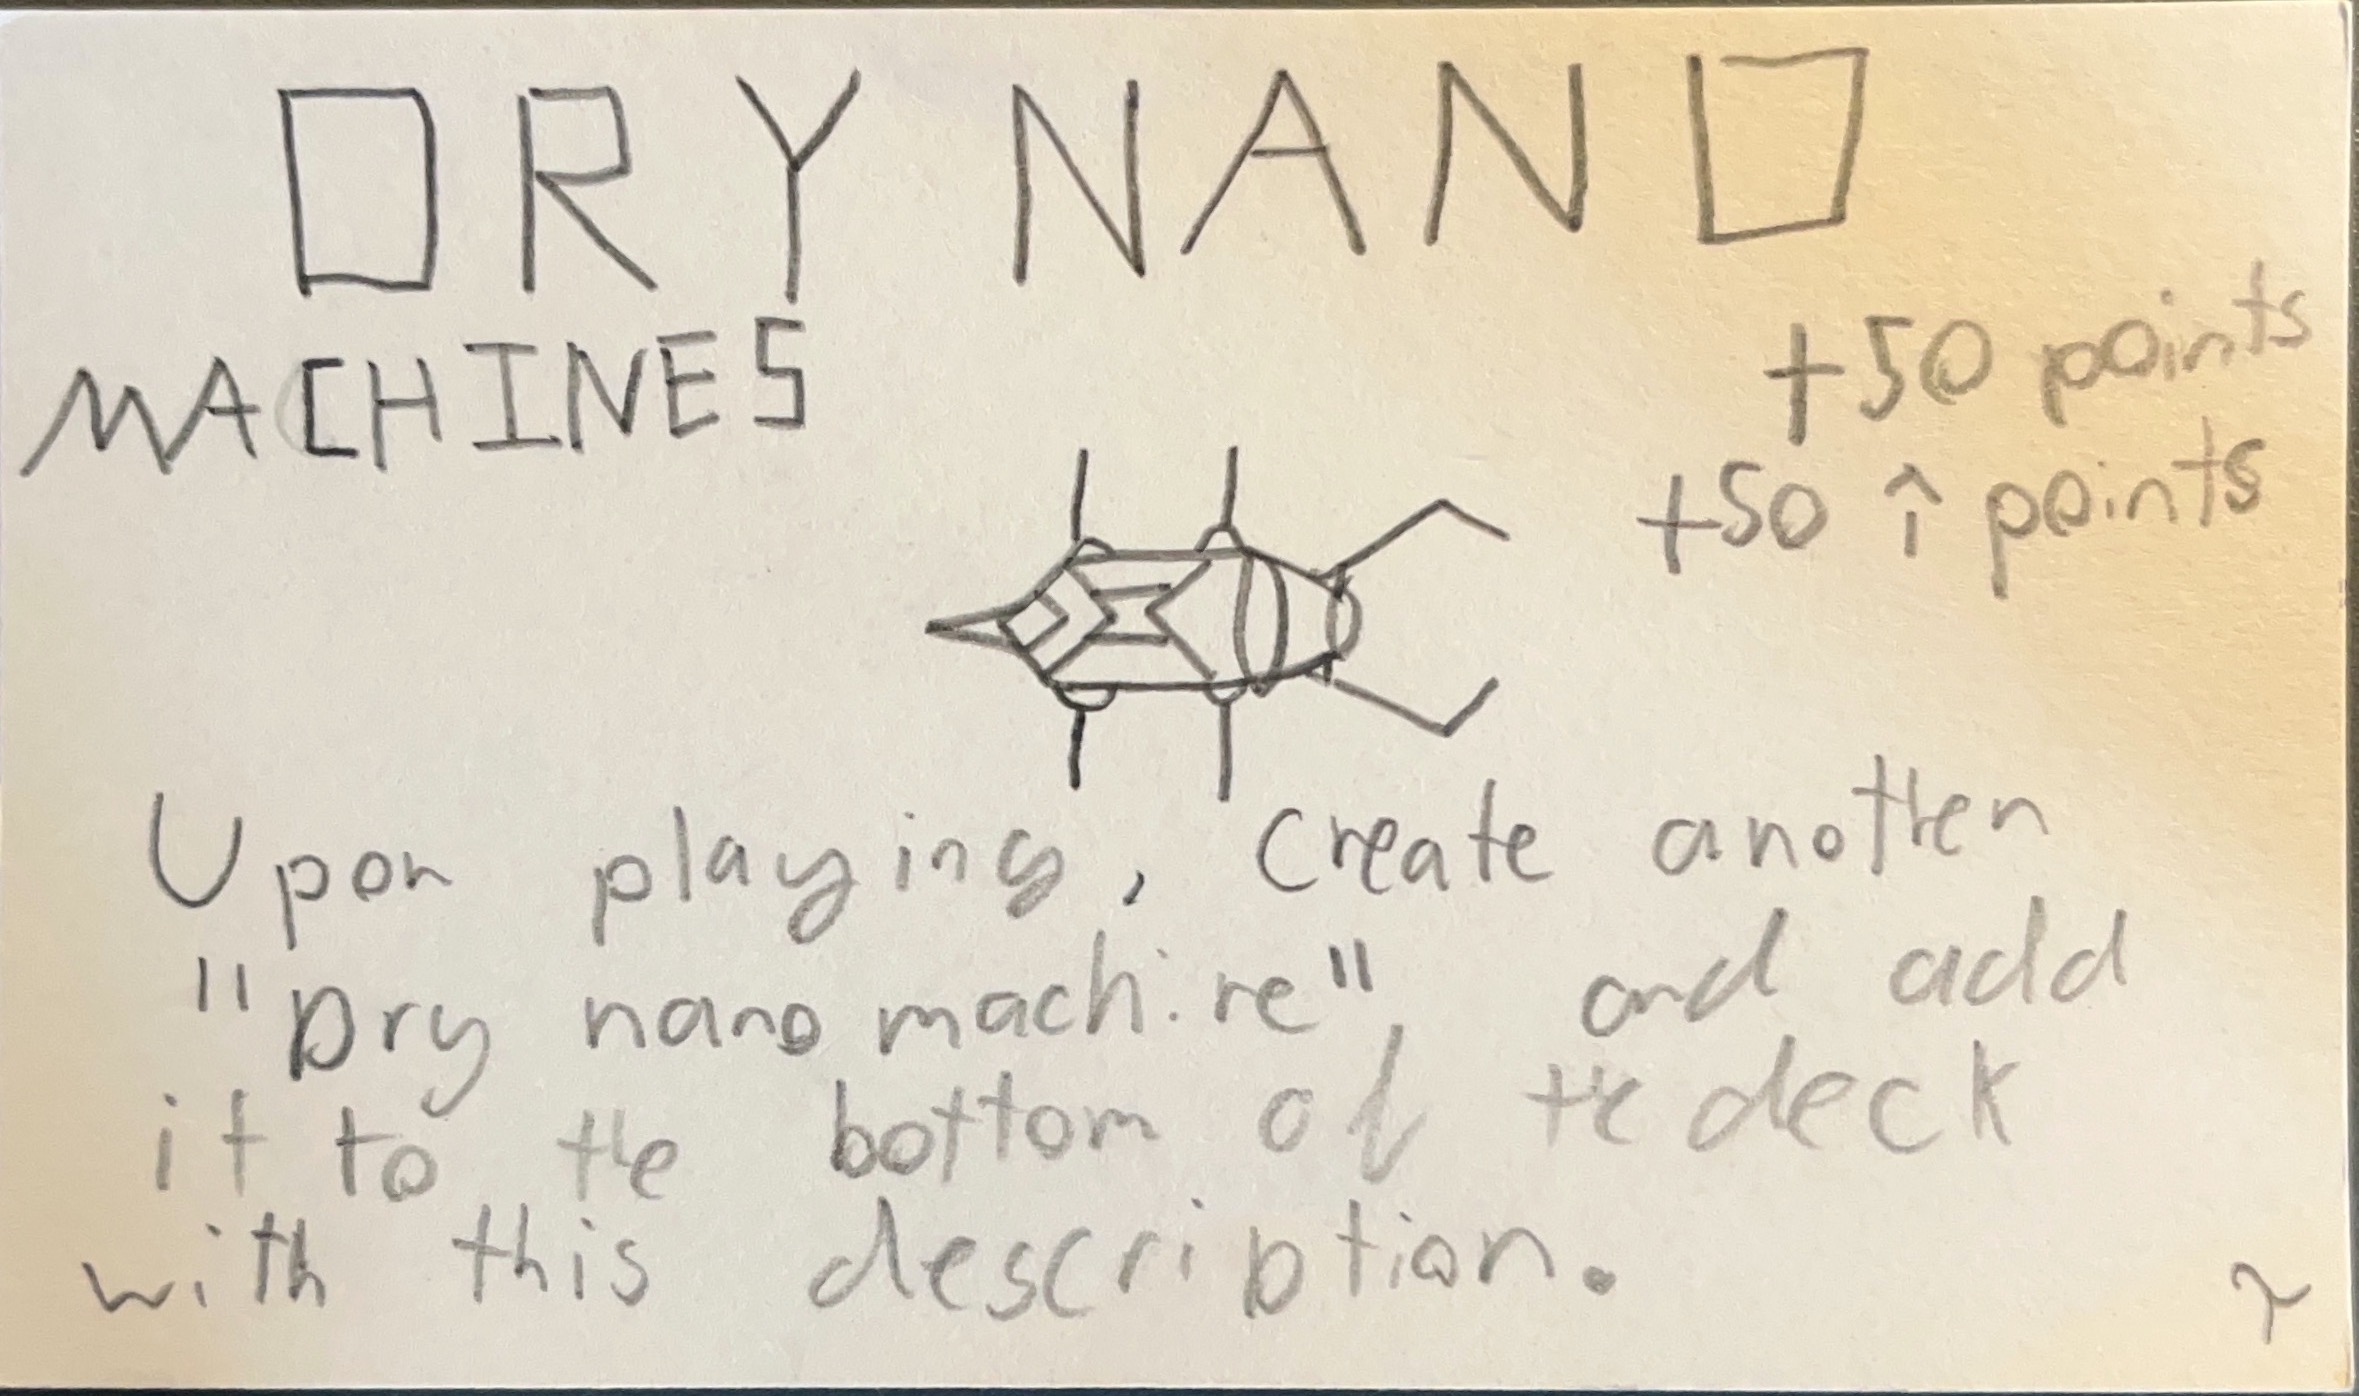 DRY NANO
MACHINES
+50 points
+50 î points
Upon playing, create another
"Dry nano machine" and add
it to the bottom of the deck
with this description.